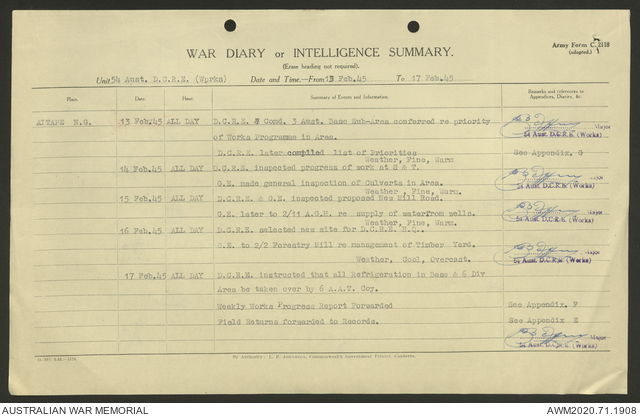 Army Form C. 2118
(adapted.)
WAR DIARY or INTELLIGENCE SUMMARY.
(Erase heading not required).
Unit 54 Aust. D.C.R.E. (Works) Date and Time—From 13 Feb.45 To 17 Feb.45
Place. Date. Hour. Summary of Events and Information. Remarks and references to Appendices, Diaries, &c.
AITAPE N.G. 13 Feb.45 ALL DAY D.C.R.E. & Comd. 3 Aust. Base Sub-Area conferred re priority
of Works Programme in Area. Major
54 Aust. D.C.R.E. (Works)
D.C.R.E. later compiled list of Priorities See Appendix, G
Weather, Fine, Warm
14 Feb.45 ALL DAY D.C.R.E. inspected progress of work at S & T.
G.E. made general inspection of Culverts in Area. Major
54 Aust. D.C.R.E. (Works)
Weather, Fine, Warm.
15 Feb.45 ALL DAY D.C.R.E. & G.E. inspected proposed New Mill Road.
G.E. later to 2/11 A.G.H. re supply of waterfrom wells. Major
54 Aust. D.C.R.E. (Works)
Weather, Fine, Warm.
16 Feb.45 ALL DAY D.C.R.E. selected new site for D.C.R.E. H.Q..
G.E. to 2/2 Forestry Mill re management of Timber Yard.
Weather, Cool, Overcast. Major
54 Aust. D.C.R.E. (Works)
17 Feb.45 ALL DAY D.C.R.E. instructed that all Refrigeration in Base & 6 Div
Area be taken over by 6 A.A.T. Coy.
Weekly Works Progress Report Forwarded See Appendix, F
Field Returns forwarded to Records. See Appendix E
Major
54 Aust. D.C.R.E. (Works)
By Authority: L. F. Johnston, Commonwealth Government Printer, Canberra.
AUSTRALIAN WAR MEMORIAL AWM2020.71.1908